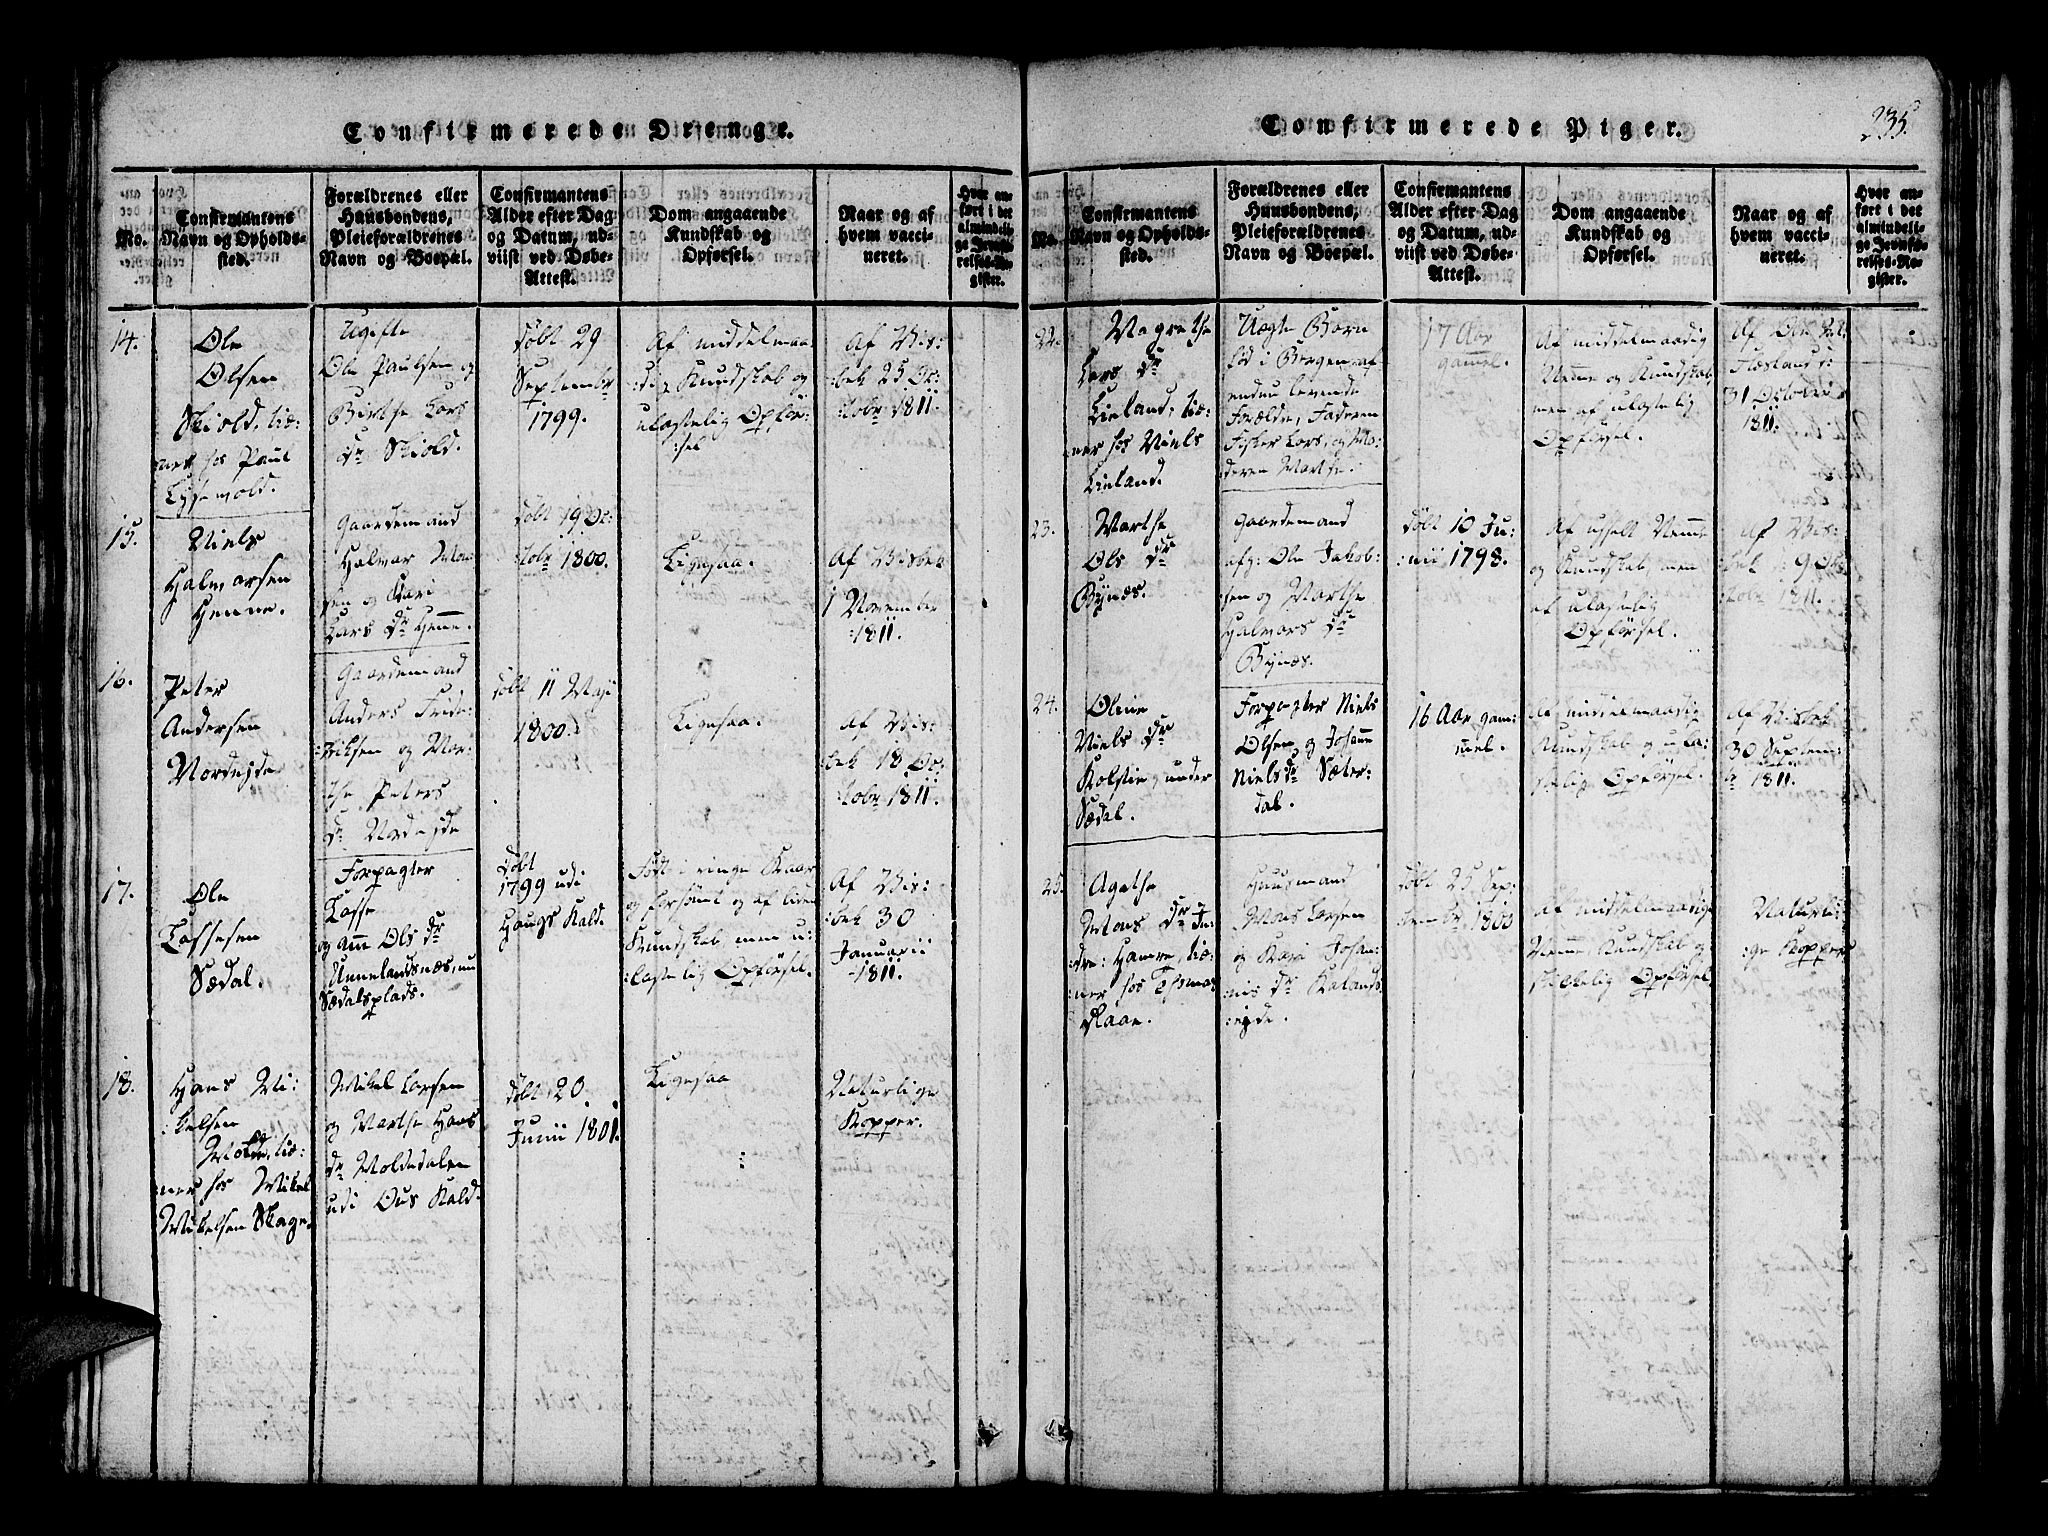 Confirmerede Drenge.
No.
Confirmantens
Navn og Opholds-
sted.
Forældrenes eller
Huusbondens,
Pleieforældrenes
Navn og Boepæl.
Confirmantens
Alder efter Dag
og Datum, ud-
viist ved Døbe-
Attest.
Dom angaaende
Kundskab og
Opførsel.
Naar og af
hvem vacci-
neret.
Hvor an-
ført i det
almindeli-
ge Jevnfø-
relses-Re-
gister.
14.
Ole
Olsen
Skiold, tie:
ner hos Paul
Ugifte
Ole Paulsen og
Birthe Lars
Dr Skiold.
døbt 29
September
1799.
Af middelmaa:
:dig Kundskab og
ulastelig Opfør:
:sel
Af Wis:
:bek 25 Oc:
:tobr 1811.
15.
Niels
Halmorsen
Henne.
Gaardemand
Halmor Mon
sen og Kari
Lars Dr Henne.
døbt 19 Oc:
:tobr 1800.
Ligesaa.
Af Wisbek
1 November
1811.
16.
Peter
Andersen
Nordejde
Gaardemand
Anders Fride:
:riksen og Mar:
the Peters
Dr Nordejde
døbt 11 Maji
1800.
Ligesaa.
Af Wis:
:bek 18 Oc:
:tobr 1811.
17.
Ole
Lassesen
Sædal.
Forpagter
Lasse
og Ann Ols Dr
Unnelandsnæs, nu
Sædalsplads.
døbt
1799 udi
Hougs Kald.
Født i ringe Kaar
og forsømt og af liden
Kundskab men u:
:lastelig Opførsel.
Af Wis:
:bek 30
Januarii
1811.
18.
Hans Mi:
:kelsen
Molde, tie:
ner hos Mikel
Mikelsen Skage.
Mikel Larsen
og Marthe Hans
Dr Moldedalen
udi Ous Kald.
døbt 20.
Junii 1801.
Ligesaa
Naturlige
Kopper.
Confirmerede Piger.
235.
No.
Confirmantens
Navn og Opholds-
sted.
Forældrenes eller
Huusbondens,
Pleieforældrenes
Navn og Boepæl.
Confirmantens
Alder efter Dag
og Datum, ud-
viist ved Døbe-
Attest.
Dom angaaende
Kundskab og
Opførsel.
Naar og af
hvem vacci-
neret.
Hvor an-
ført i det
almindeli-
ge Jevnfø-
relses-Re-
gister.
22.
Magrethe
Lars Dr
Lieland, tie:
ner hos Niels
Lieland.
Uægte Barn
fød i Bergen af
endnu levende
Forældre, Faderen
Fisker Lars, og Mo:
:deren Marthe.
17 Aar
gammel.
Af middelmaadig
Nemme og Kundskab,
men af ulastelig
Opførsel.
31 October
1811.
23.
Marthe
Ols Dr
Bynæs.
Gaardemand
afg: Ole Jakob:
:sen og Marthe
Halmors Dr
Bynæs.
døbt 10 Ju:
:nii 1798.
Af usselt Nemme
og Kundskab, men
af ulastelig
Opførsel.
Af Wis:
:bek 9 Oc:
:tobr 1811.
24.
Oline
Niels Dr
Kolstie, under
Sædal.
Forpagter Niels
Olsen og Johanne
Niels Dr Sæter:
dal.
16 Aar gam:
mel.
Af middelmaadig
Kundskab og ula:
stelig Opførsel.
Af Wisbek
30 Septem:
br 1811.
25.
Agathe
Mons Dr In:
dre: Hamre, tie:
:ner hos Thomas
Huusmand
Mons Larsen
og Kari Johan:
:nis Dr Kalands:
:ejde.
døbt 25 Sep:
tembr 1800
Af middelmaadig
Nemme, Kundskab og
skikkelig Opførsel.
Naturli:
:ge Kopper